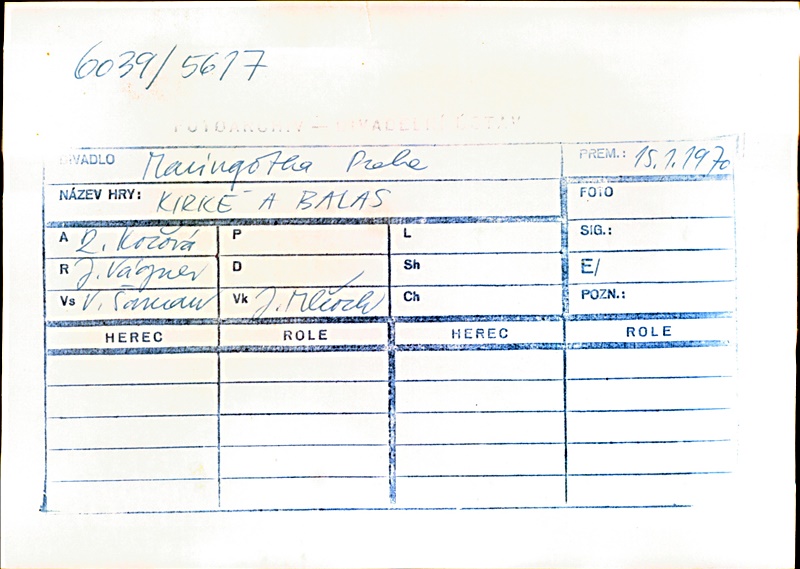 6039/5617
FOTOARCHIV – DIVADELNÍ ÚSTAV
DIVADLO Maringotka Praha PREM.: 15.1.1970
NÁZEV HRY: KIRKÉ A BALAS FOTO
A Z. Kočová P L SIG.:
R J. Vágner D Sh E/
Vs V. Vk J. Ch POZN.:
HEREC ROLE HEREC ROLE